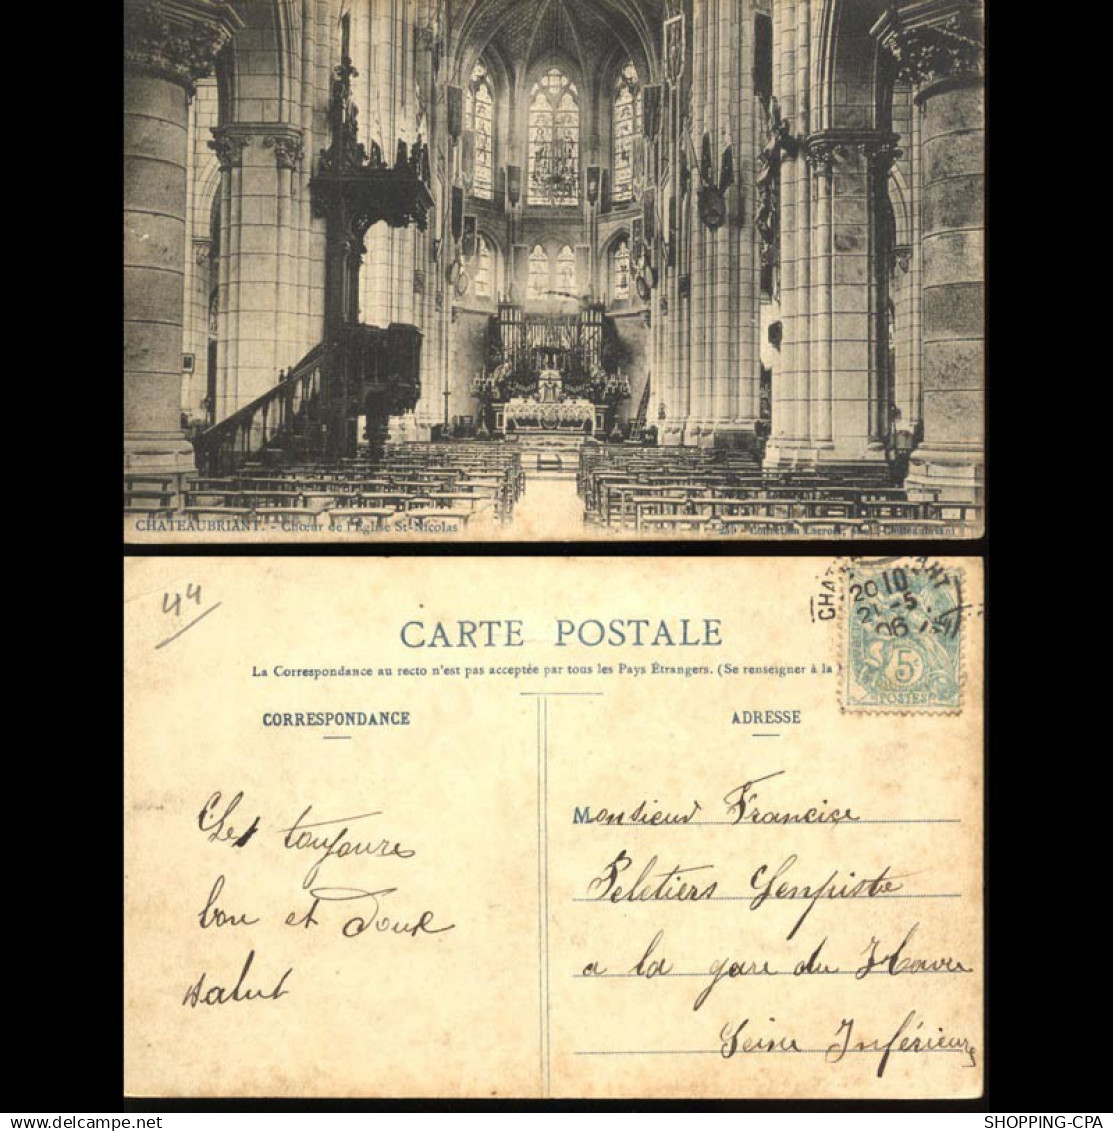 CHATEAUBRIANT. - Chœur de l'Église St-Nicolas
239 - Collection Lacroix, phot., Chateaubriant
44
CARTE POSTALE
La Correspondance au recto n'est pas acceptée par tous les Pays Étrangers. (Se renseigner à la
CORRESPONDANCE
ADRESSE
20 10
21 -5
06
5c
POSTES
toujours
bon et doux
salut
Monsieur Francise
Peletiers Lempiste
a la gare du Havre
Seine Inférieure
SHOPPING-CPA